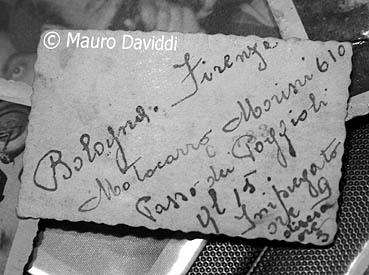 © Mauro Daviddi
Bologna. Firenze
Motocarro Morini 610
Passo dei Poggioli
Impiegato
ore 9